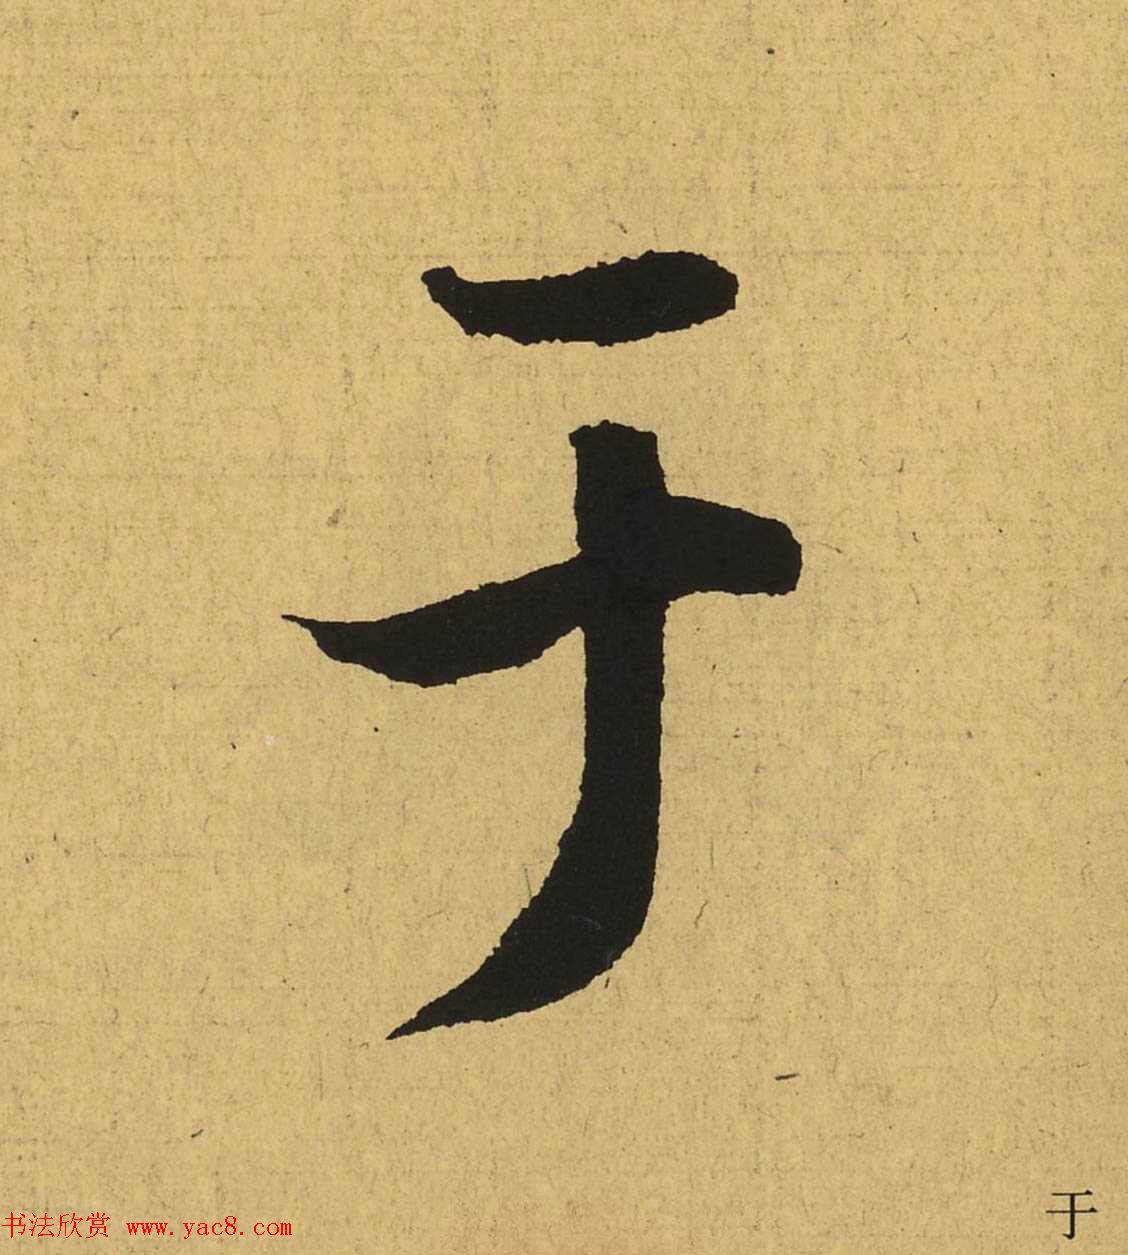 于
书法欣赏 www.yac8.com
于